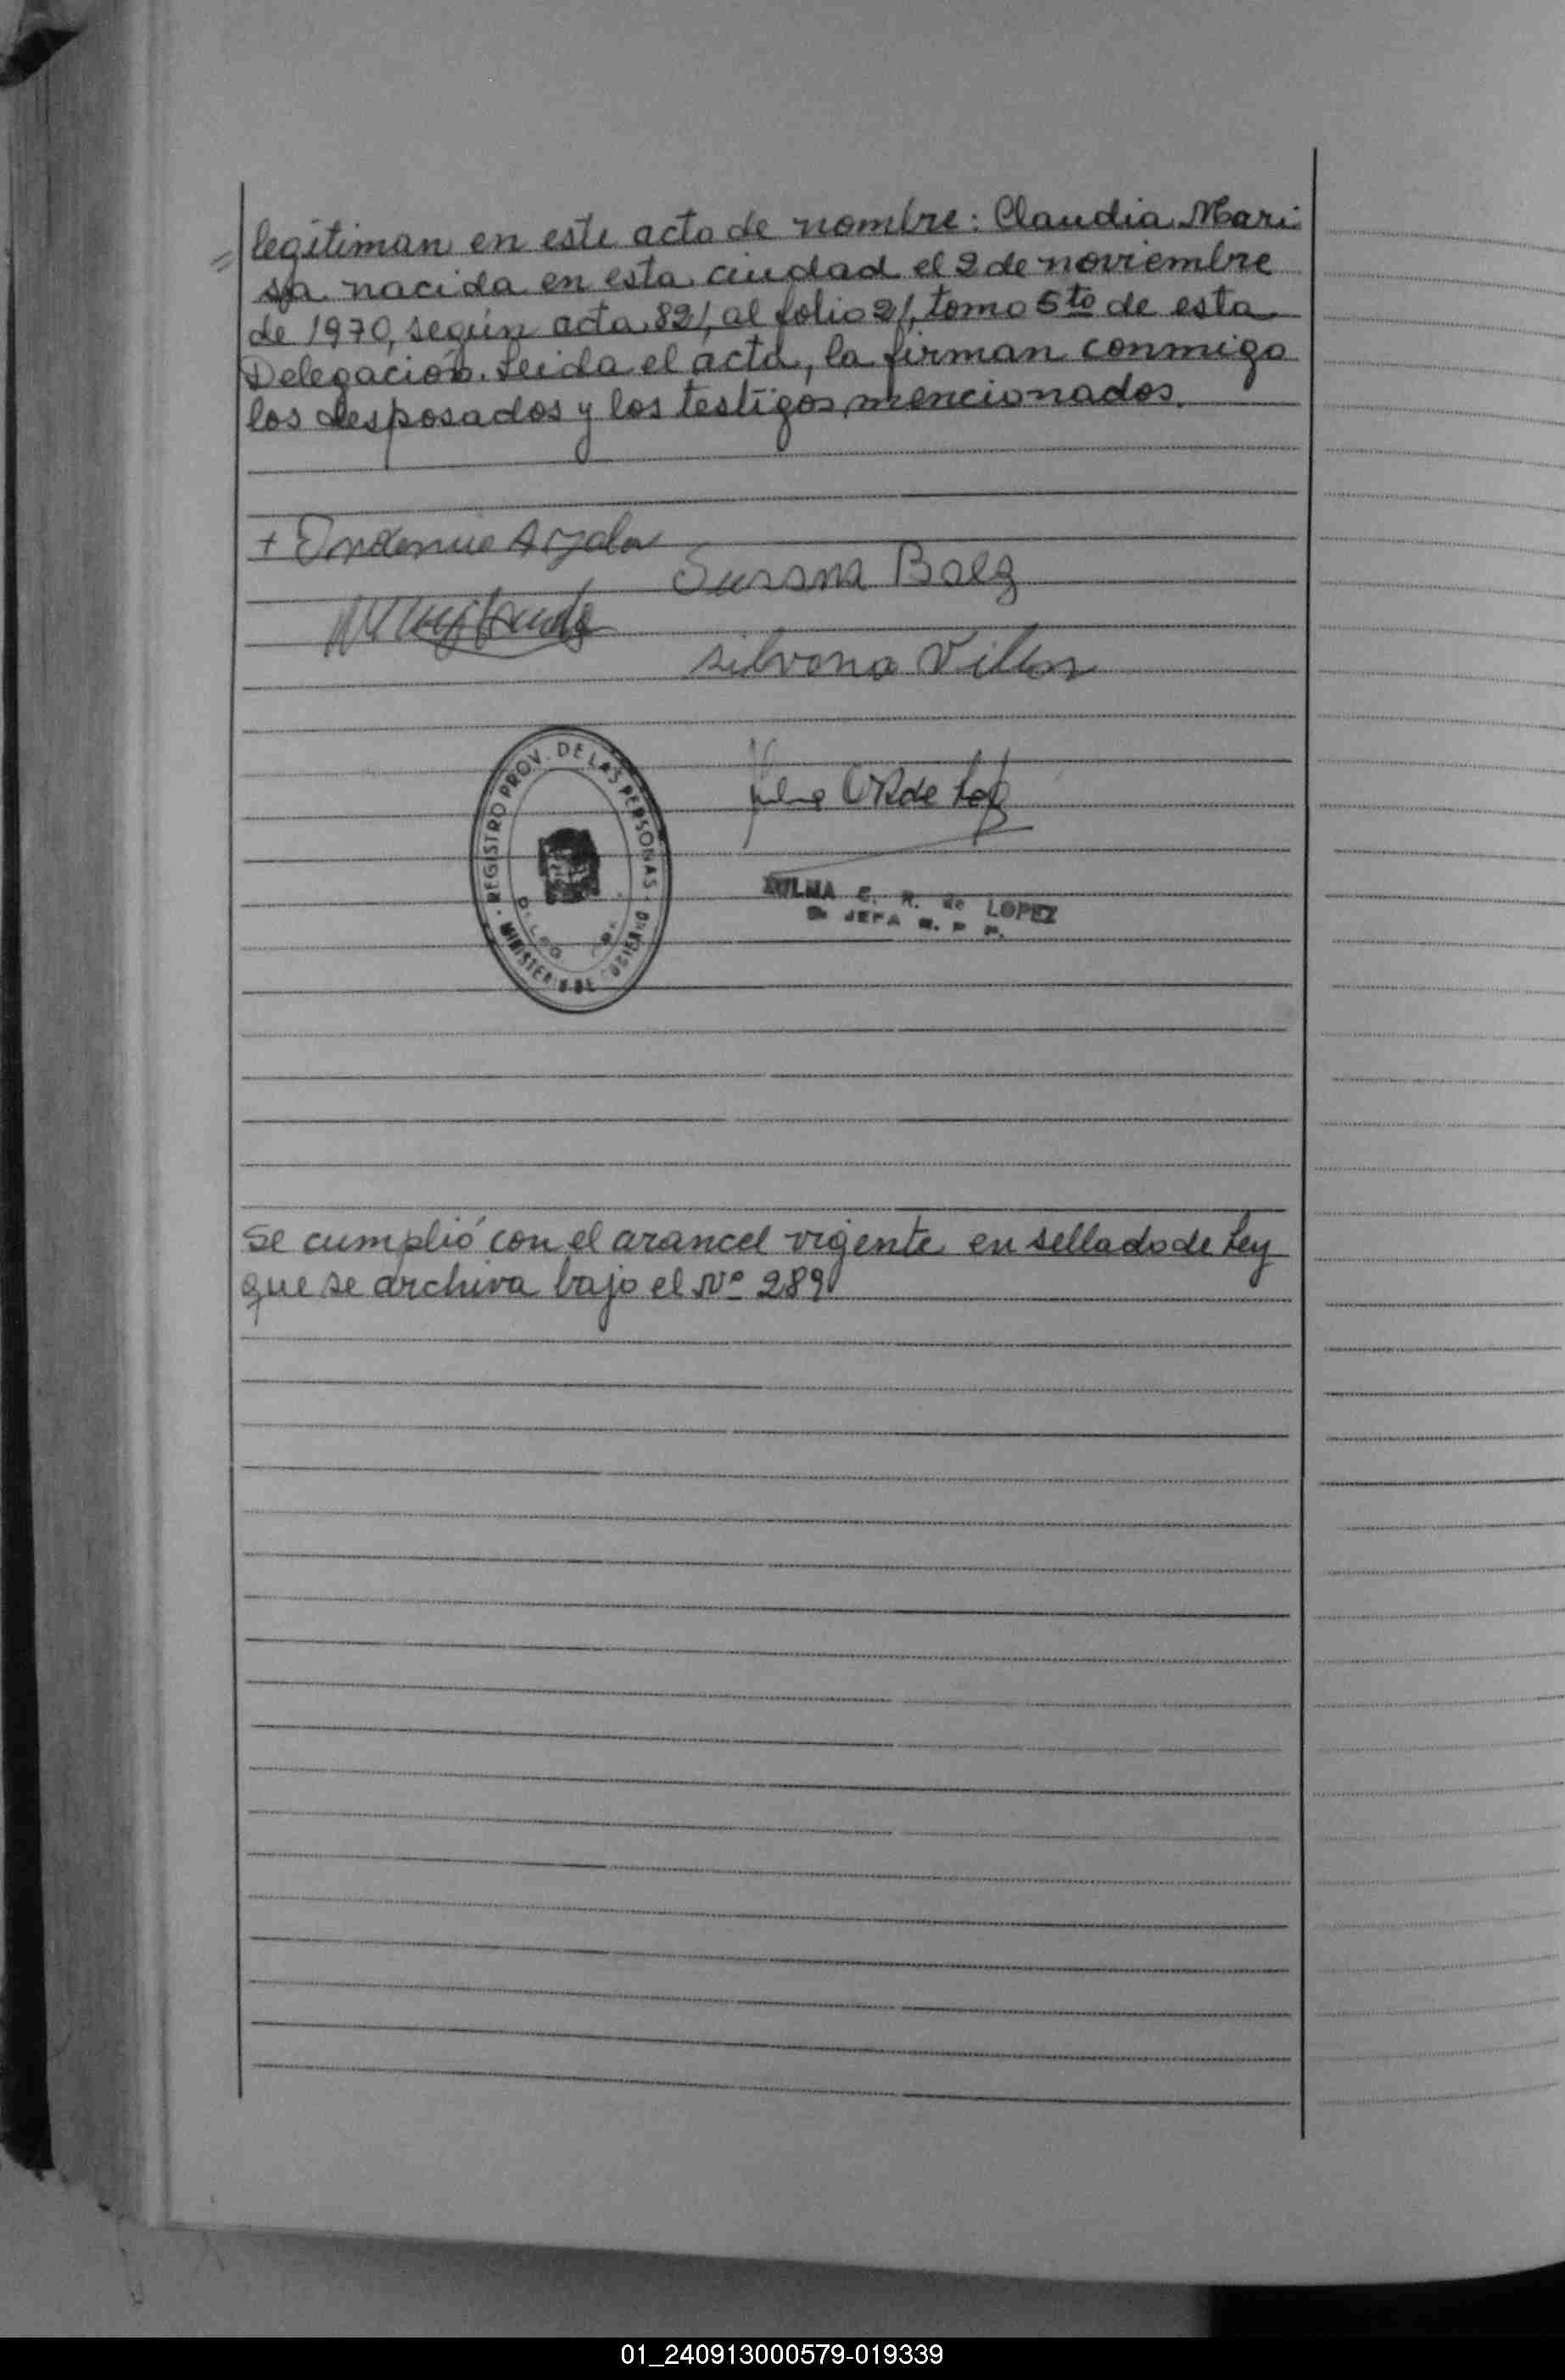 legitiman en este acto de nombre: Claudia Mari
= sa nacida en esta ciudad el 2 de noviembre
de 1970, según acta 821, al folio 21, tomo 5to de esta
Delegación. Leida el acta, la firman conmigo
los desposados y los testigos mencionados.
+ Ayala
Susana Baez
Silvana Villar
de Lopez
REGISTRO PROV. DE LAS PERSONAS
MINISTERIO DE GOBIERNO
ZULMA C. R. de LOPEZ
JEFA R. P. P.
Se cumplió con el arancel vigente en sellado de Ley
que se archiva bajo el Nº 289
01_240913000579-019339